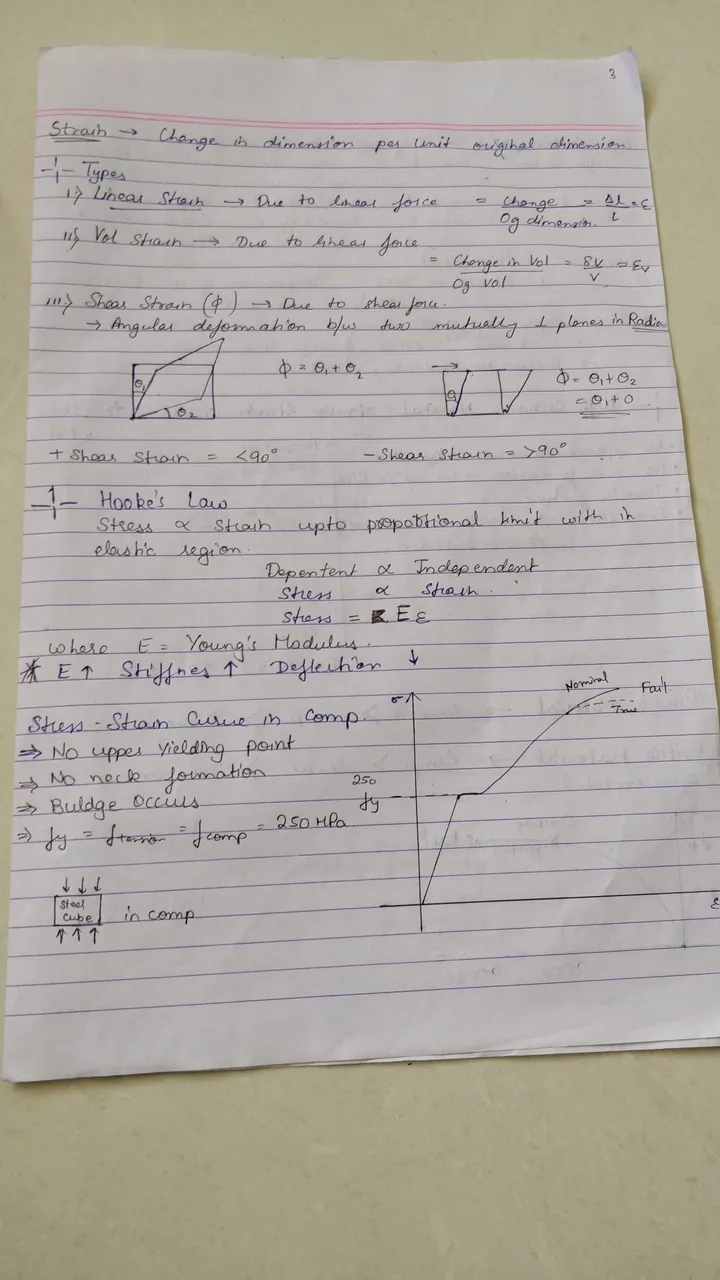 3
Strain → Change in dimension per unit original dimension
Types
i.) Linear Strain → Due to linear force = Change / Og dimension. = ΔL / L = ε
ii) Vol Strain → Due to linear force
= Change in Vol / Og Vol = δV / V = εv
iii) Shear Strain (ϕ) → Due to shear force.
→ Angular deformation b/w two mutually ⊥ planes in Radia
θ1 θ2 ϕ = θ1 + θ2
θ ϕ = θ1 + θ2
= θ1 + 0
+ Shear Strain = <90° - Shear Strain = >90°
Hooke's Law
Stress ∝ Strain upto propotional limit with in
elastic region.
Depentent ∝ Independent
Stress ∝ Strain.
Stress = E ε
where E = Young's Modulus.
* E ↑ Stiffnes ↑ Deflection ↓
Stress - Strain Curve in Comp.
⇒ No upper yielding point
⇒ No neck formation
⇒ Buldge Occurs
⇒ fy = ftension = fcomp = 250 MPa
↓ ↓ ↓
Steel
Cube
↑ ↑ ↑
in comp
σ
Nominal
Fail.
True
250
fy
ε